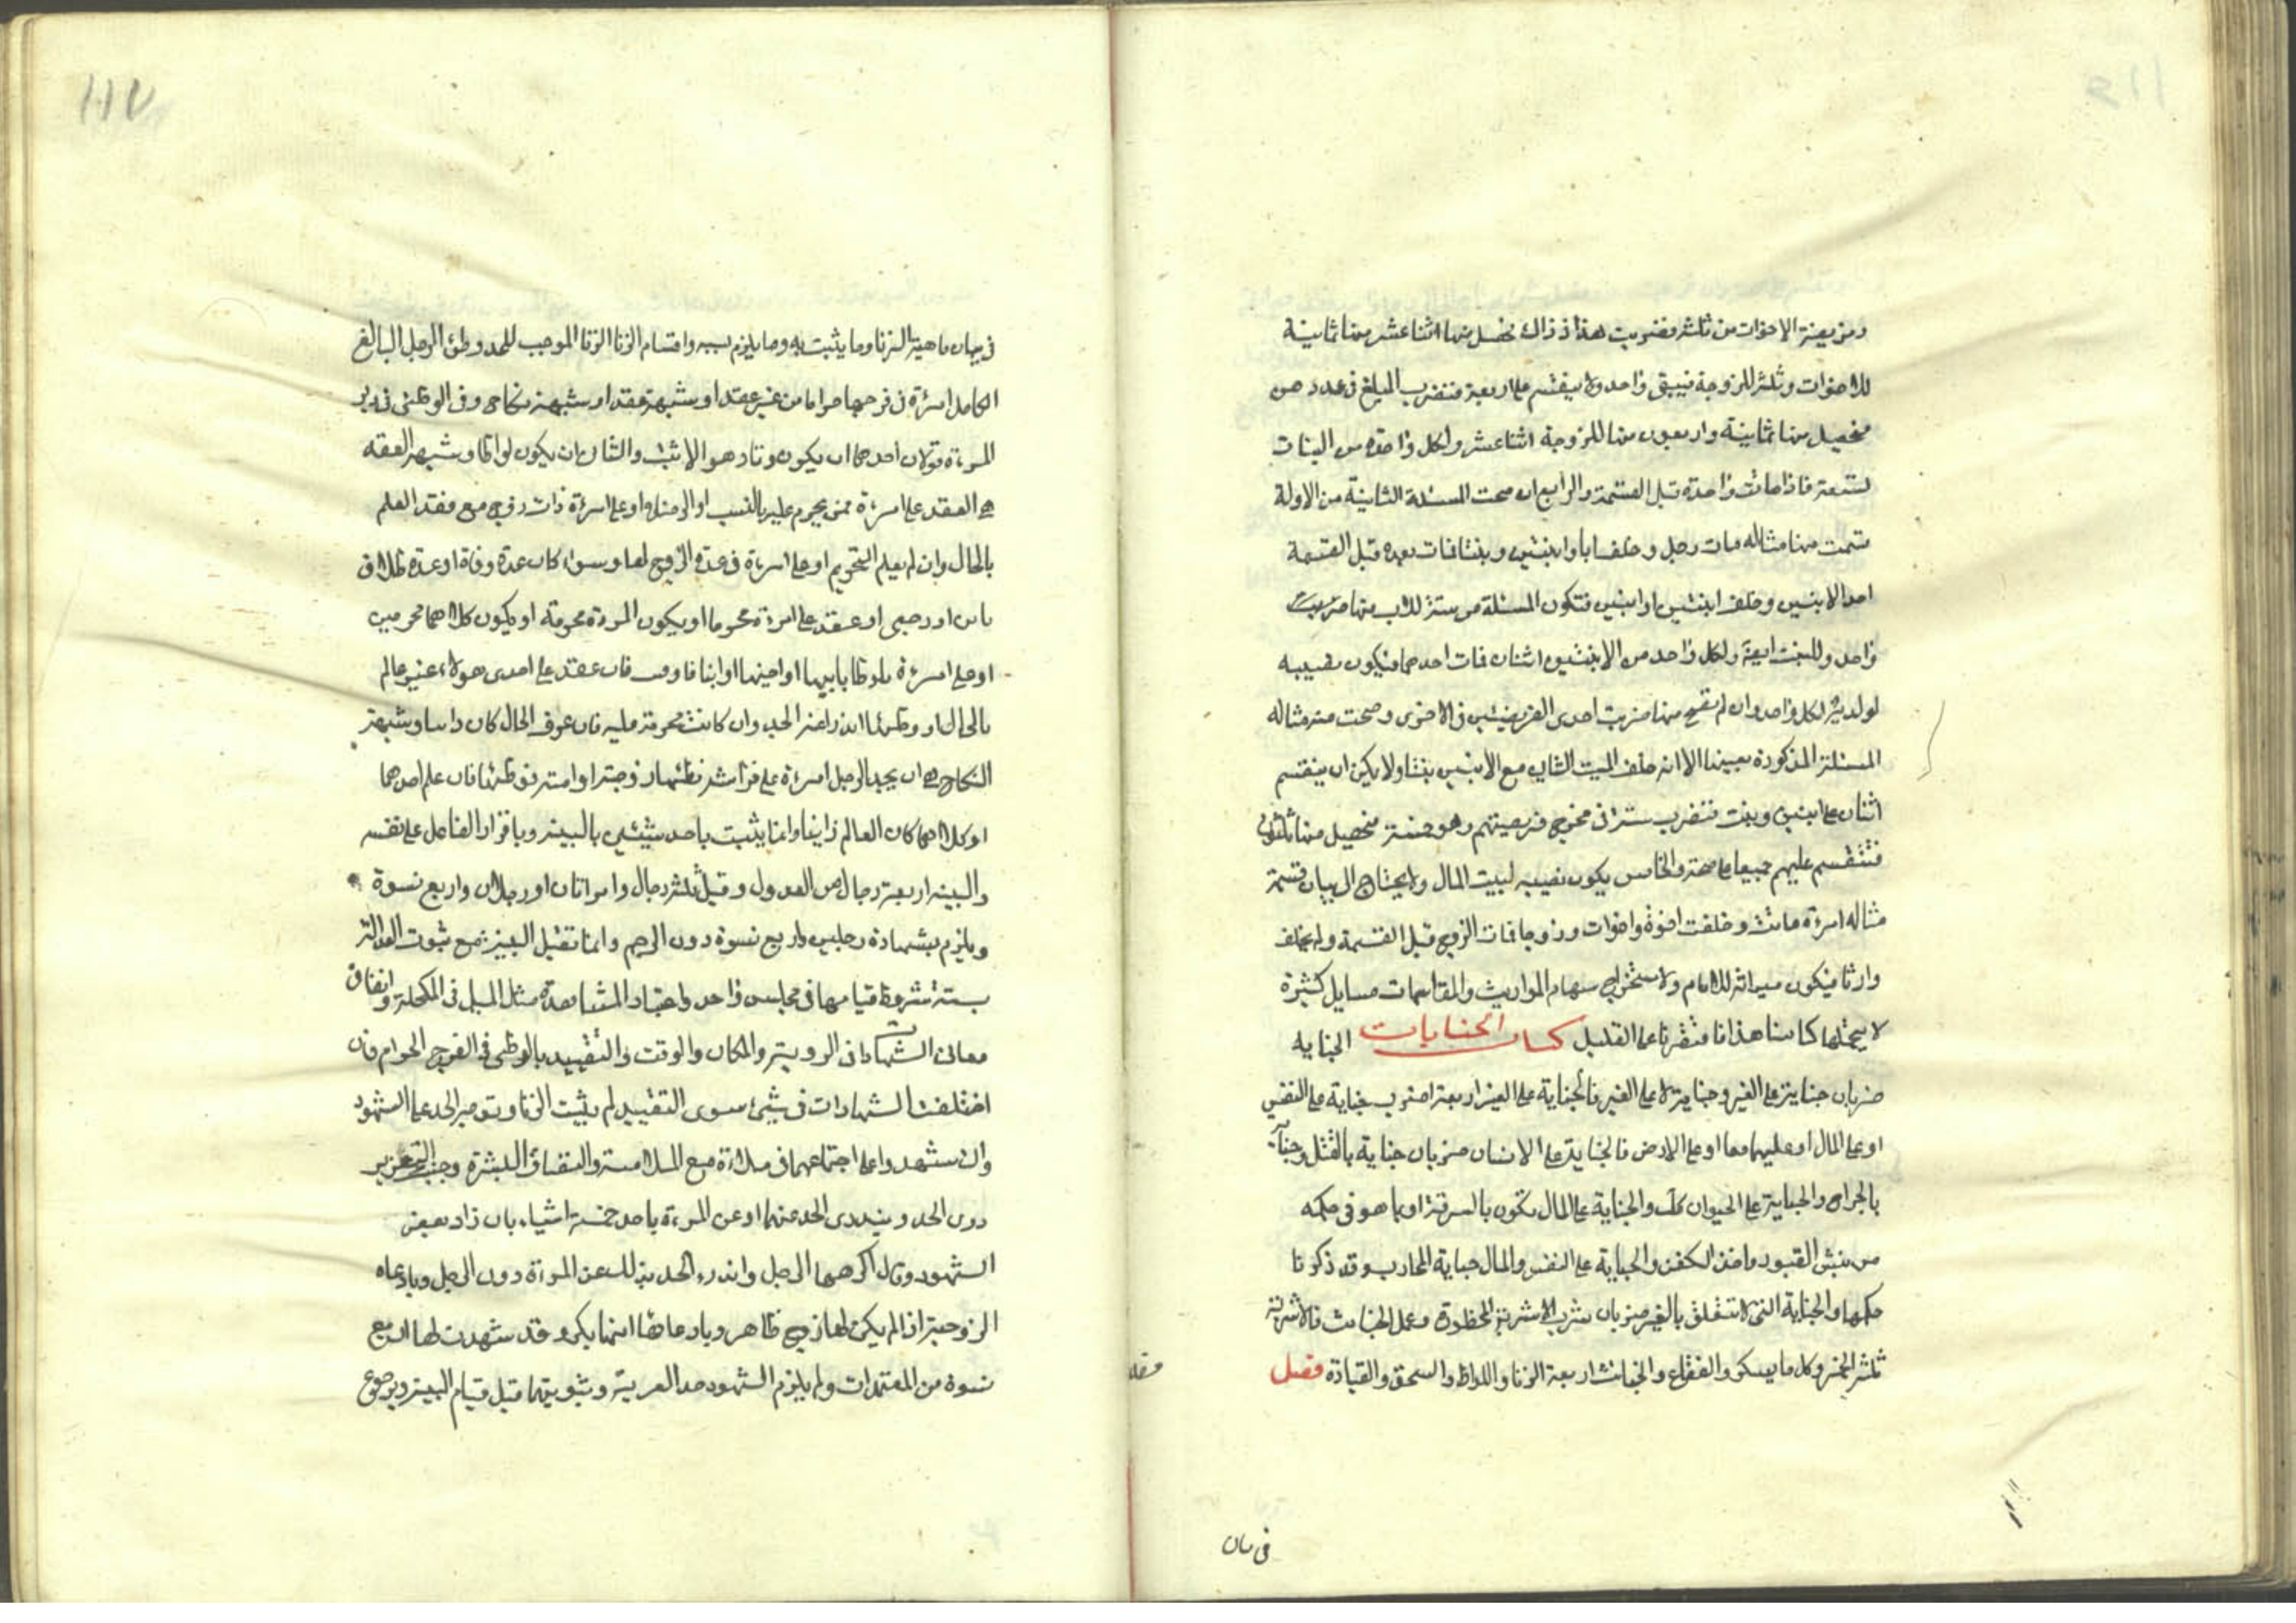 وفريضة الاخوات من ثلثة فضربت هذا فى ذاك تحصل منها اثنا عشر منها ثمانية
للاخوات وثلثة للزوجة فيبقى واحد ولا ينقسم على اربعة فتضرب المبلغ فى عدد
فتحصل منها ثمانية واربعون منها للزوجة اثنا عشر ولكل واحدة من البنات
تسعة فاذا ماتت واحدة قبل القسمة والرابع ان صحت المسئلة الثانية من الاولة
قسمت منها مثاله مات رجل وخلف ابا وابنين وبنتا فمات بعده قبل القسمة
احد الابنين وخلف ابنتين او ابنين فتكون المسئلة من ستة للاب منها
واحد وللبنت ايضا ولكل واحد من الابنين اثنان فمات احدهما فيكون نصيبه
لولديه لكل واحد وان لم تقع منها ضربت احدى الفريضتين فى الاخرى وصحت منه مثاله
المسئلة المذكورة بعينها الا انه خلف الميت الثانى مع الابنين بنتا ولا يمكن ان ينقسم
اثنان على ابنين وبنت فتضرب ستة فى مخرج فريضتهم وهو خمسة فتحصل منها ثلثون
فتنقسم عليهم جميعا على صحة والخامس يكون نصيبه لبيت المال ولا يحتاج الى بيان قسمة
مثاله امرءة ماتت وخلفت اخوة واخوات وزوجا فمات الزوج قبل القسمة ولم يخلف
وارثا فيكون ميراثه للامام ولاستخراج سهام المواريث والمقاسمات مسايل كثيرة
لا يحتملها كتابنا هذا فاقتصرنا على القليل كتاب الجنايات الجناية
ضربان جناية على الغير وجناية لا على الغير فالجناية على الغير اربعة اضرب جناية على النفس
او على المال او عليهما معا او على الارض فالجناية على الانسان ضربان جناية بالقتل وجناية
بالجراح والجناية على الحيوان كك والجناية على المال تكون بالسرقة او بما هو فى حكمه
من نبش القبور واخذ الكفن والجناية على النفس والمال جناية المحارب وقد ذكرنا
حكمها والجناية التى لا تتعلق بالغير ضربان شرب الاشربة المحظورة وعمل الخبائث فالاشربة
ثلثة الخمر وكل ما يسكر والفقاع والخبائث اربعة الزنا واللواط والسحق والقيادة فصل
فى بيان
١١٧
فى بيان ماهية الزنا وما يثبت به وما يلزم بسببه واقسام الزنا الزنا الموجب للحد وطئ الرجل البالغ
الكامل امرءة فى فرجها حراما من غير عقد او شبهة عقد او شبهة نكاح وفى الوطئ فى دبر
المرءة قولان احدهما ان يكون زنا وهو الاثبت والثانى ان يكون لواطا وشبهة العقد
هى العقد على امرءة ممن يحرم عليه بالنسب او الرضاع او على امرءة ذات زوج مع فقد العلم
بالحال وان لم يعلم التحريم او على امرءة فى عدة الزوج لها وسواء كان عدة وفاة او عدة طلاق
باين او رجعى او عقد على امرءة محرما او يكون المرءة محرمة او يكون كلاهما محرمين
او على امرءة تلوط بابيها او اخيها او ابنها فاوقب فان عقد على احدى هولاء غير عالم
بالحال او وطئها اندرا عنه الحد وان كانت محرمة عليه فان عرف الحال كان زانيا وشبهة
النكاح هى ان يجد الرجل امرءة على فراشه فظنها زوجته او امته فوطئها فان علم احدهما
او كلاهما كان العالم زانيا وانما يثبت باحد شيئين بالبينة وباقرار الفاعل على نفسه
والبينة اربعة رجال من العدول وقيل ثلثة رجال وامراتان او رجلان واربع نسوة
ويلزم بشهادة رجلين واربع نسوة دون الرجم وانما تقبل البينة مع ثبوت العدالة
بستة شروط قيامها فى مجلس واحد واخبار المشاهدة مثل الميل فى المكحلة واتفاق
معانى الشهادات فى الروية والمكان والوقت والتقييد بالوطئ فى الفرج الحرام فان
اختلفت الشهادات فى شئ سوى التقييد لم يثبت الزنا وتوجه الحد على الشهود
وان شهدوا على اجتماعهما فى ملاءة مع الملامسة والتصاق البشرة وجب التعزير
دون الحد ويندرى الحد عنهما او عن المرءة باحد خمسة اشياء بان زاد بعض
الشهود وقال اكرهها الرجل واندرء الحد بذلك عن المرءة دون الرجل وبادعاء
الزوجية اذا لم يكن لها زوج ظاهر وبادعائها انها بكر وقد شهدت لها اربع
نسوة من المعتمدات ولم يلزم الشهود حد الفرية وبتوبتهما قبل قيام البينة وبرجوع